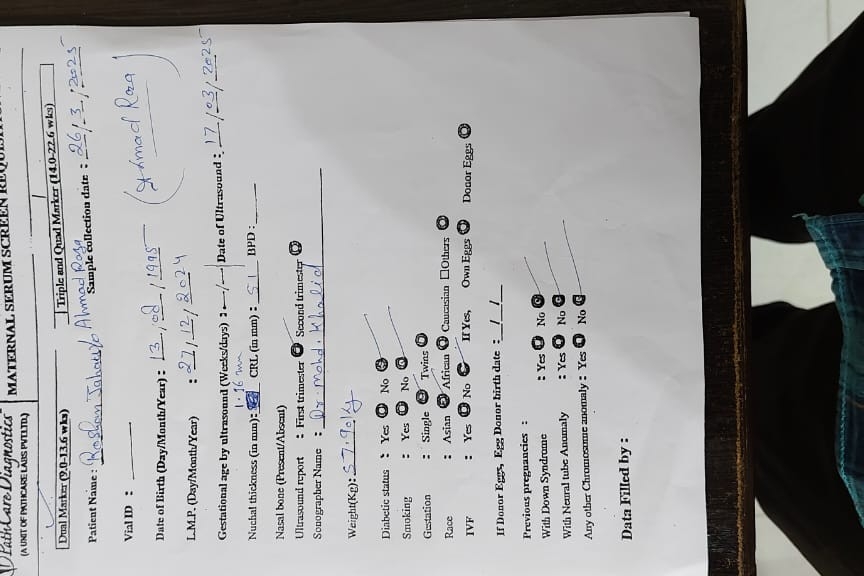 PathCare Diagnostics
(A UNIT OF PATHCARE LABS PVT.LTD.)
MATERNAL SERUM SCREEN REQUISITION
Dual Marker (9.0-13.6 wks)
Triple and Quad Marker (14.0-22.6 wks)
Patient Name : Roshan Jahan w/o Ahmad Raza
Sample collection date : 26/3/2025
Vial ID :
(Ahmad Raza)
Date of Birth (Day/Month/Year) : 13/08/1995
L.M.P. (Day/Month/Year) : 27/12/2024
Gestational age by ultrasound (Weeks/days) : / Date of Ultrasound : 17/03/2025
1.16 mm
Nuchal thickness (in mm): CRL (in mm) : 51 BPD :
Nasal bone (Present/Absent)
Ultrasound report : First trimester Second trimester
Sonographer Name : Dr. Mohd. Khalid
Weight(Kg): 57.90 Kg
Diabetic status : Yes No
Smoking : Yes No
Gestation : Single Twins
Race : Asian African Caucasian Others
IVF : Yes No If Yes, Own Eggs Donor Eggs
If Donor Eggs, Egg Donor birth date : / /
Previous pregnancies :
With Down Syndrome : Yes No
With Neural tube Anomaly : Yes No
Any other Chromosome anomaly : Yes No
Data Filled by :